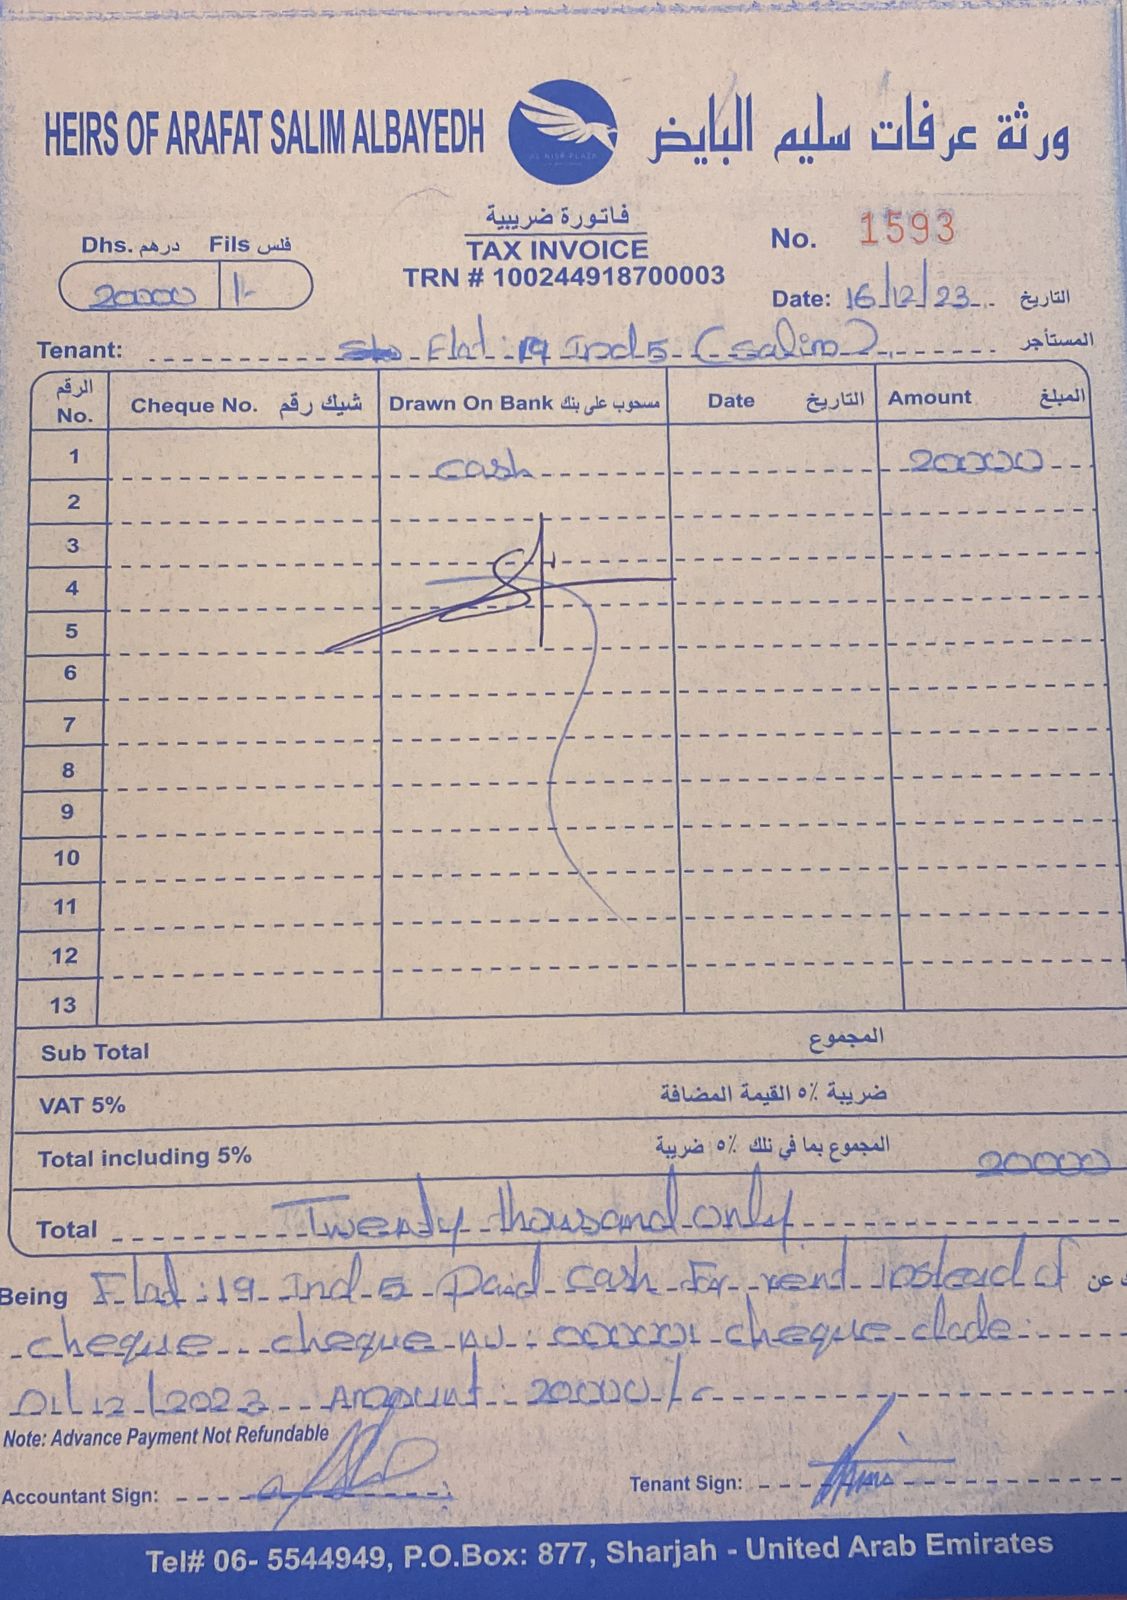 HEIRS OF ARAFAT SALIM ALBAYEDH
ورثة عرفات سليم البايض
AL NISR PLAZA
فاتورة ضريبية
TAX INVOICE
TRN # 100244918700003
Dhs. درهم Fils فلس
20000 /-
No. 1593
Date: 16/12/23 التاريخ
Tenant: Flat : 19 Ind 5 (salim) المستأجر
الرقم No. Cheque No. شيك رقم Drawn On Bank مسحوب على بنك Date التاريخ Amount المبلغ
1 cash 20000
2
3
4
5
6
7
8
9
10
11
12
13
Sub Total المجموع
VAT 5% ضريبة ٥٪ القيمة المضافة
Total including 5% المجموع بما في ذلك ٥٪ ضريبة 20000
Total Twenty thousand only
Being Flat : 19 Ind 5 Paid cash For rent instead of عن
cheque cheque NO : 000001 cheque date :
01/12/2023 Amount : 20000/-
Note: Advance Payment Not Refundable
Accountant Sign:
Tenant Sign:
Tel# 06- 5544949, P.O.Box: 877, Sharjah - United Arab Emirates